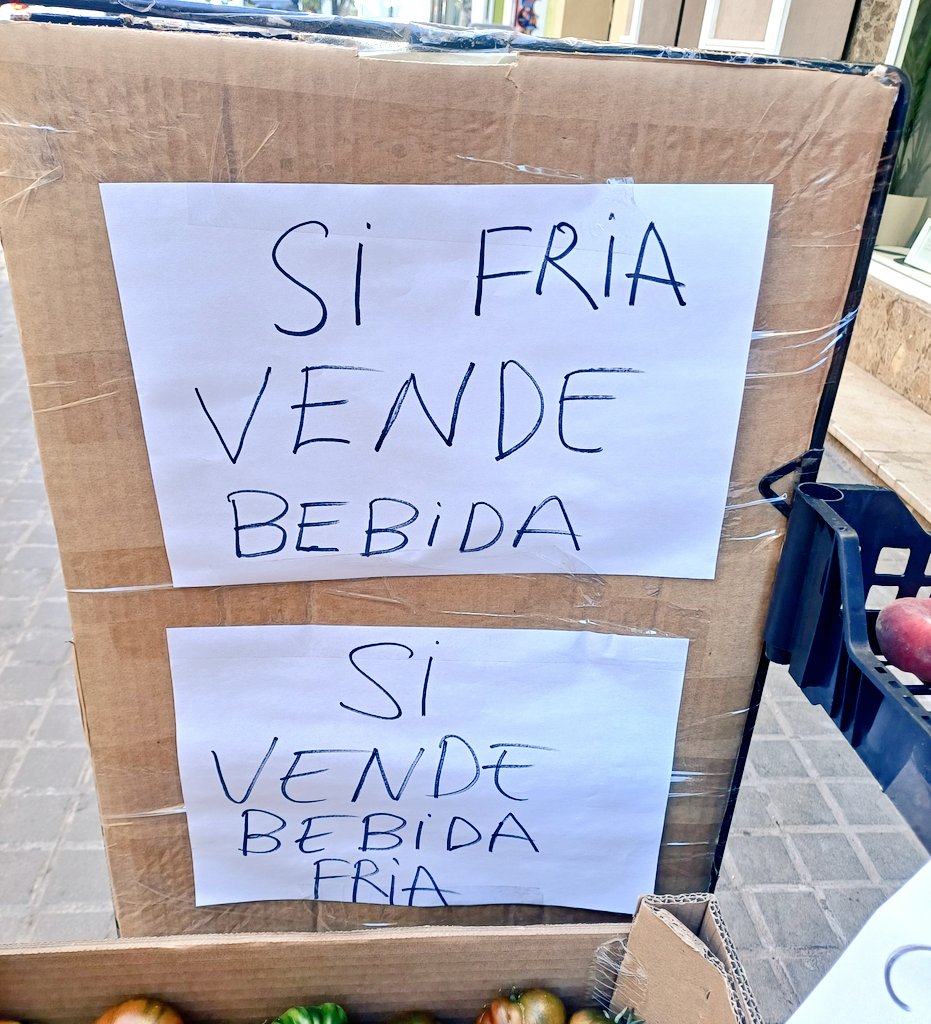 Si FRiA
VENDE
BEBiDA
Si
VENDE
BEBiDA
FRiA